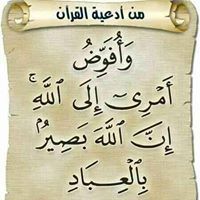 من أدعية القرآن
وَأُفَوِّضُ
أَمْرِىٓ إِلَى ٱللَّهِ ۚ
إِنَّ ٱللَّهَ بَصِيرٌۢ
بِٱلْعِبَادِ